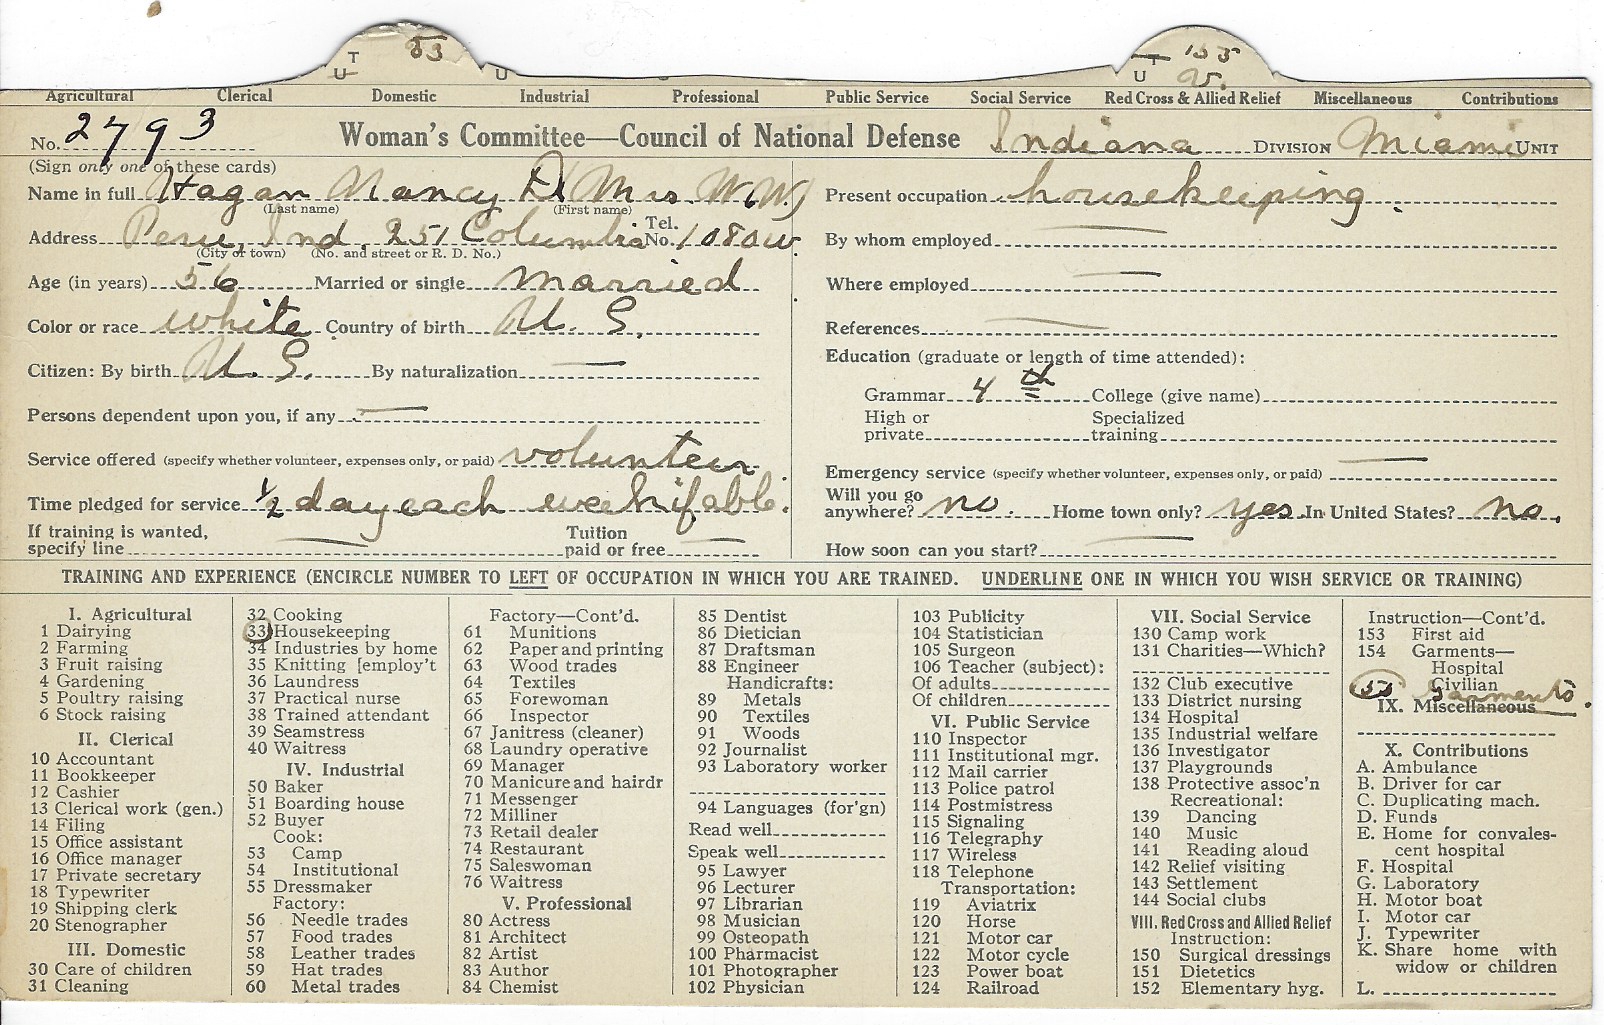 T 33 T 155
U U U v.
Agricultural Clerical Domestic Industrial Professional Public Service Social Service Red Cross & Allied Relief Miscellaneous Contributions
No. 2793 Woman's Committee—Council of National Defense Indiana DIVISION Miami UNIT
(Sign only one of these cards)
Name in full Hagan Nancy D (Mrs W. W.)
(Last name) (First name)
Address Peru, Ind. 251 Columbia Tel. No. 1080w
(City or town) (No. and street or R. D. No.)
Age (in years) 56 Married or single married
Color or race white Country of birth U. S.
Citizen: By birth U. S. By naturalization —
Persons dependent upon you, if any —
Service offered (specify whether volunteer, expenses only, or paid) volunteer
Time pledged for service 1/2 day each week if able.
If training is wanted, specify line — Tuition paid or free —
Present occupation housekeeping.
By whom employed —
Where employed —
References —
Education (graduate or length of time attended):
Grammar 4th College (give name)
High or private Specialized training
Emergency service (specify whether volunteer, expenses only, or paid) —
Will you go anywhere? no. Home town only? yes In United States? no.
How soon can you start? —
TRAINING AND EXPERIENCE (ENCIRCLE NUMBER TO LEFT OF OCCUPATION IN WHICH YOU ARE TRAINED. UNDERLINE ONE IN WHICH YOU WISH SERVICE OR TRAINING)
I. Agricultural
1 Dairying
2 Farming
3 Fruit raising
4 Gardening
5 Poultry raising
6 Stock raising
II. Clerical
10 Accountant
11 Bookkeeper
12 Cashier
13 Clerical work (gen.)
14 Filing
15 Office assistant
16 Office manager
17 Private secretary
18 Typewriter
19 Shipping clerk
20 Stenographer
III. Domestic
30 Care of children
31 Cleaning
32 Cooking
33 Housekeeping
34 Industries by home
35 Knitting [employ't
36 Laundress
37 Practical nurse
38 Trained attendant
39 Seamstress
40 Waitress
IV. Industrial
50 Baker
51 Boarding house
52 Buyer
Cook:
53 Camp
54 Institutional
55 Dressmaker
Factory:
56 Needle trades
57 Food trades
58 Leather trades
59 Hat trades
60 Metal trades
Factory—Cont'd.
61 Munitions
62 Paper and printing
63 Wood trades
64 Textiles
65 Forewoman
66 Inspector
67 Janitress (cleaner)
68 Laundry operative
69 Manager
70 Manicure and hairdr
71 Messenger
72 Milliner
73 Retail dealer
74 Restaurant
75 Saleswoman
76 Waitress
V. Professional
80 Actress
81 Architect
82 Artist
83 Author
84 Chemist
85 Dentist
86 Dietician
87 Draftsman
88 Engineer
Handicrafts:
89 Metals
90 Textiles
91 Woods
92 Journalist
93 Laboratory worker
94 Languages (for'gn)
Read well
Speak well
95 Lawyer
96 Lecturer
97 Librarian
98 Musician
99 Osteopath
100 Pharmacist
101 Photographer
102 Physician
103 Publicity
104 Statistician
105 Surgeon
106 Teacher (subject):
Of adults
Of children
VI. Public Service
110 Inspector
111 Institutional mgr.
112 Mail carrier
113 Police patrol
114 Postmistress
115 Signaling
116 Telegraphy
117 Wireless
118 Telephone
Transportation:
119 Aviatrix
120 Horse
121 Motor car
122 Motor cycle
123 Power boat
124 Railroad
VII. Social Service
130 Camp work
131 Charities—Which?
132 Club executive
133 District nursing
134 Hospital
135 Industrial welfare
136 Investigator
137 Playgrounds
138 Protective assoc'n
Recreational:
139 Dancing
140 Music
141 Reading aloud
142 Relief visiting
143 Settlement
144 Social clubs
VIII. Red Cross and Allied Relief
Instruction:
150 Surgical dressings
151 Dietetics
152 Elementary hyg.
Instruction—Cont'd.
153 First aid
154 Garments—
Hospital
Civilian
155 Garments.
IX. Miscellaneous
X. Contributions
A. Ambulance
B. Driver for car
C. Duplicating mach.
D. Funds
E. Home for convales-
cent hospital
F. Hospital
G. Laboratory
H. Motor boat
I. Motor car
J. Typewriter
K. Share home with
widow or children
L.